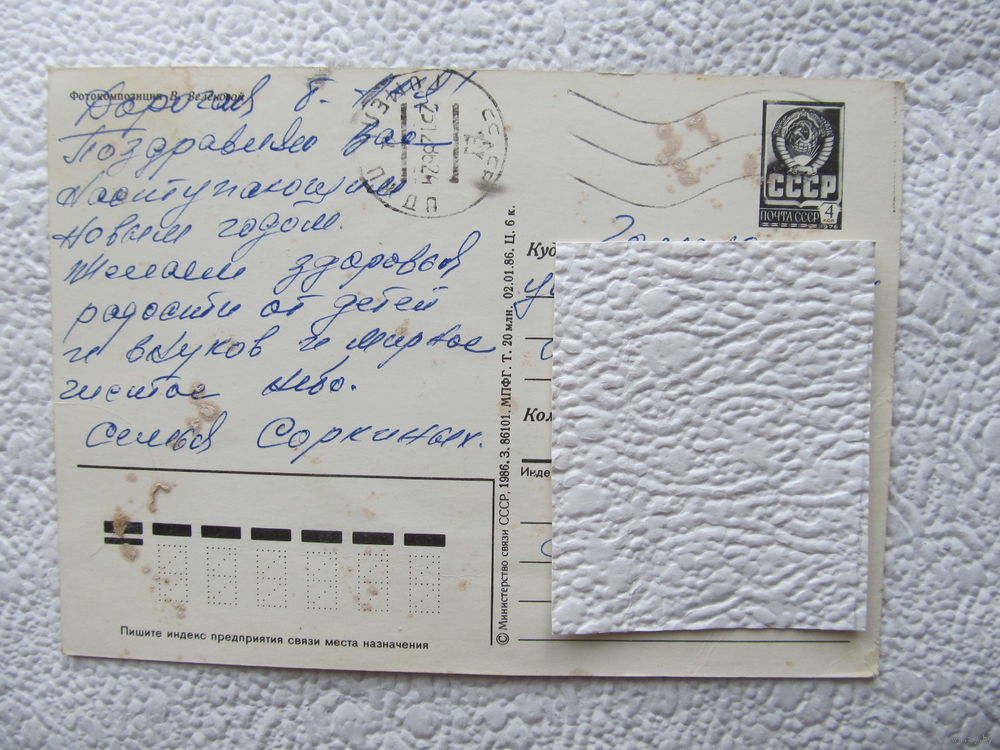 Фотокомпозиция В. Зелёновой
Дорогая
Поздравляю Вас
Наступающим
Новым годом.
Желаем здоровья
радости от детей
и внуков и мирное
чистое небо.
Семья Соркиных.
СССР
ПОЧТА СССР
4
КОП
1976
Куд
Ком
Инде
© Министерство связи СССР, 1986. З. 86101. МПФГ. Т. 20 млн. 02.01.86. Ц. 6 к.
Пишите индекс предприятия связи места назначения